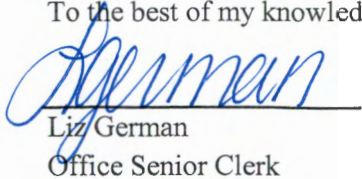 To the best of my knowled
LGerman
Liz German
Office Senior Clerk